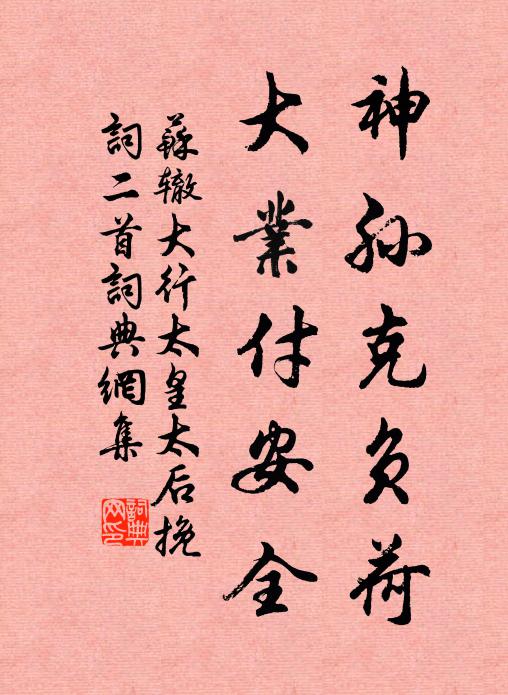 神孙克负荷
大業付安全
蘇辙大行太皇太后挽
詞二首詞典網集
詞典网印